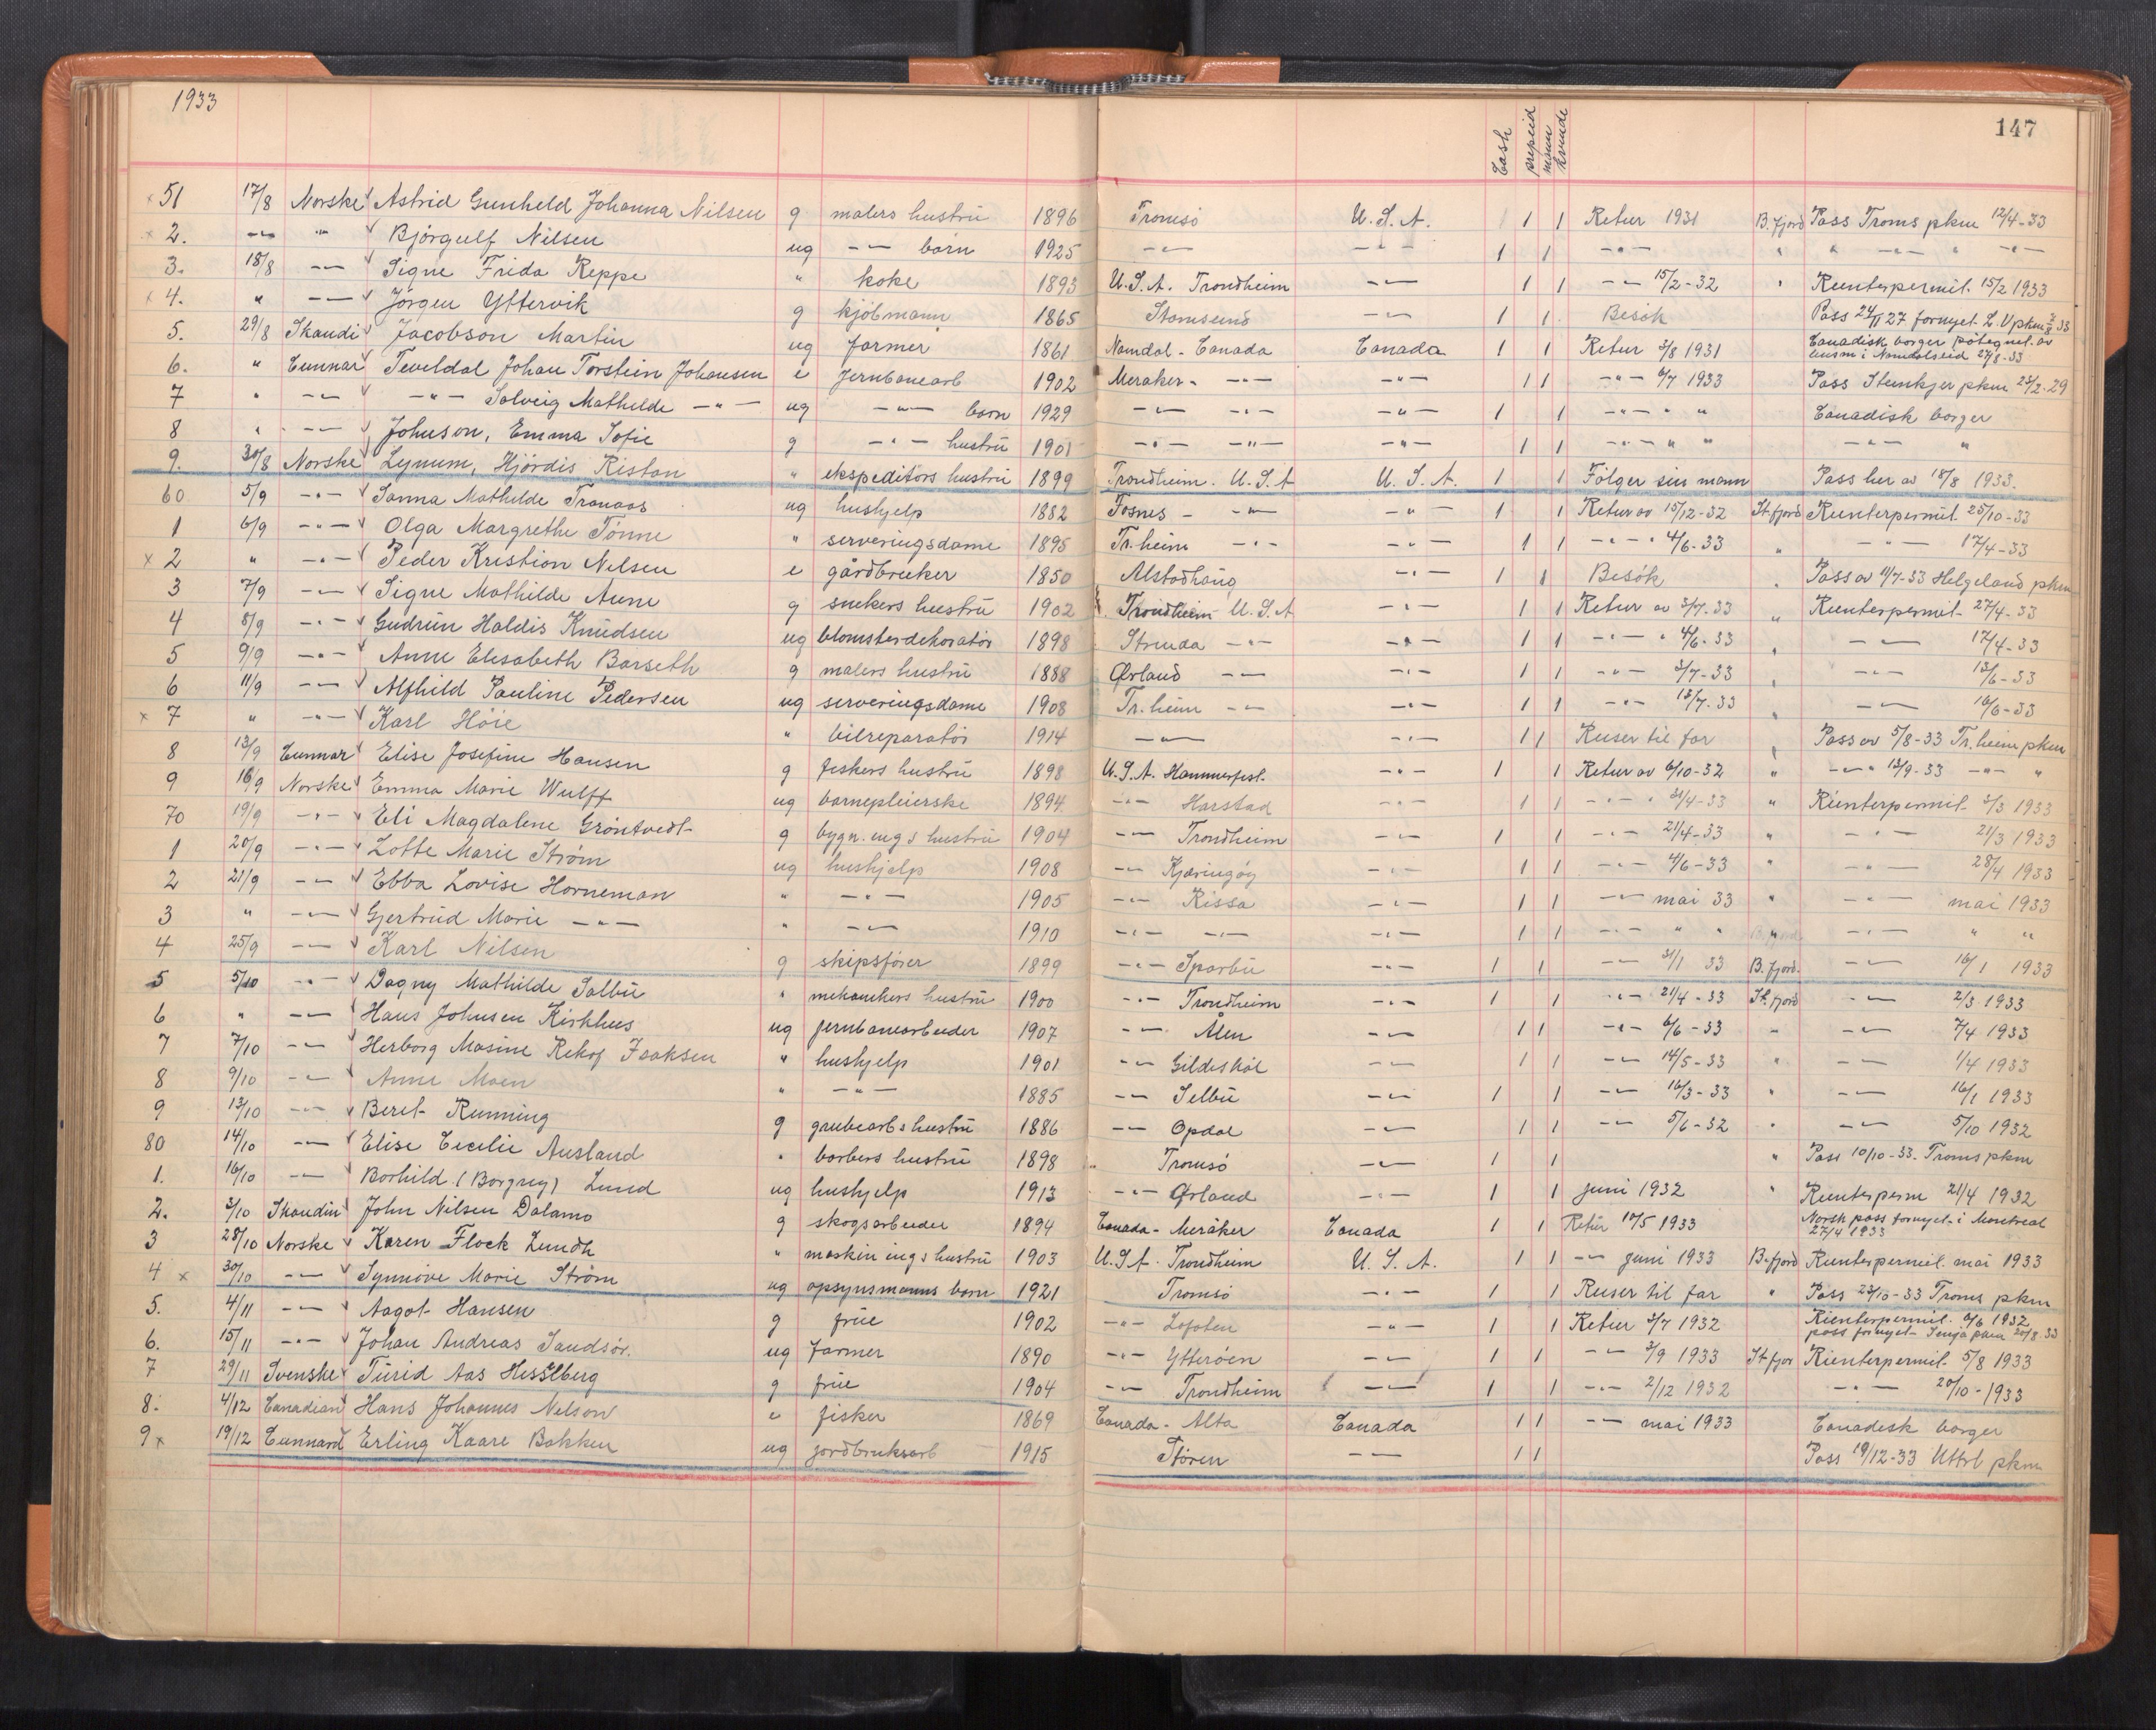 1933
147
Cash prepeid mann kvinde
51 17/8 Norske Astrid Gunheld Johanna Nilsen g malers hustru 1896 Tromsö U.S.A. 1 1 Retur 1931 B.fjord Pass Troms pkm 12/4-33
2. -"- " Bjórgulf Nilsen ug -"- barn 1925 -"- -"- 1 1 -"- " " -"- " -"-
3. 18/8 -"- Signe Frida Reppe " koke 1893 U.S.A. Trondheim -"- 1 1 -"- 15/2-32 " Reenterpermit. 15/2 1933
4. " -"- Jörgen Yttervik g kjöbmann 1865 -"- 1 1 Besök Pass 24/11 27 fornyet L.V pkm 7/8 33
5. 29/8 Skandi Jacobson Martin ug farmer 1861 Namdal - Canada Canada 1 1 Retur 3/8 1931 Canadisk borger påtegnet av lensm i Namdalseid 27/8-33
6. " Cunnar Teveldal Johan Torstein Johansen e jernbanearb 1902 Meraker - -"- -"- 1 1 -"- 6/7 1933 Pass Steinkjer pkm 23/2-29
7 " -"- -"- Solveig Mathilde -"- ug -"- barn 1929 -"- -"- -"- 1 1 -"- " " Canadisk borger
8 " -"- Johnson, Emma Sofie g -"- hustru 1901 -"- -"- -"- 1 1 -"- " " -"- "
9. 30/8 Norske Lynum, Hjördis Ristan " ekspeditörs hustru 1899 Trondheim. U.S.A U.S.A. 1 1 Fölger sin mann Pass her av 18/8 1933.
60 5/9 -"- Sanna Mathilde Tranaas ug hushjelp 1882 Fosnes - -"- -"- 1 1 Retur av 15/12-32 St.fjord Reenterpermit 25/10-33
1 6/9 -"- Olga Margrethe Tönne " serveringsdame 1895 Tr.heim -"- -"- 1 1 -"- " 4/6-33 " -"- 17/4-33
x 2 " -"- Peder Kristian Nilsen e gårdbruker 1850 Alstadhaug -"- 1 1 Besök " Pass av 11/7-33 Helgeland pkm
3 7/9 -"- Signe Mathilde Aune g snekers hustru 1902 Trondheim U.S.A -"- 1 1 Retur av 3/7-33 Reenterpermit 27/4-33
4 8/9 -"- Gudrun Haldis Knudsen ug blomsterdekoratör 1898 Strinda -"- -"- 1 1 -"- " 4/6-33 " -"- 17/4-33
5 9/9 -"- Anne Elisabeth Barseth g malers hustru 1888 Örland -"- -"- 1 1 -"- 3/7-33 " -"- 13/6-33
6 11/9 -"- Alfhild Pauline Pedersen ug serveringsdame 1908 Tr.heim -"- -"- 1 1 -"- 18/7-33 " -"- 16/6-33
x 7 " -"- Karl Höie " bilreparatör 1914 -"- -"- 1 1 Reiser til far Pass av 5/8-33 Tr.heim pkm
8 13/9 Cunnar Elise Josefine Hansen g fiskers hustru 1898 U.S.A. Hammerfest. -"- 1 1 Retur av 6/10-32 " -"- " 13/9-33 -"- "
9 16/9 Norske Emma Marie Wulff ug barnepleierske 1894 -"- Harstad -"- 1 1 -"- " 21/4-33 " Reenterpermit 3/3 1933
70 19/9 -"- Eli Magdalene Gröntvedt g bygn. ings hustru 1904 -"- Trondheim -"- 1 1 -"- 21/4-33 " -"- 21/3 1933
1 20/9 -"- Lotte Marie Ström ug hushjelp 1908 -"- Kjæringöy -"- 1 1 -"- 4/6-33 " -"- 28/4 1933
2 21/9 -"- Ebba Lovise Horneman " -"- 1905 -"- Rissa -"- 1 1 -"- mai 33 " -"- mai 1933
3 " -"- Gjertrud Marie -"- " -"- 1910 -"- -"- -"- 1 1 -"- " " -"- " "
4 25/9 -"- Karl Nilsen g skipsförer 1899 -"- Sparbu -"- 1 1 -"- 31/1 33 B.fjord. -"- 16/1 1933
5 5/10 -"- Dagny Mathilde Salbu " mekanikers hustru 1900 -"- Trondheim -"- 1 1 -"- 21/4-33 St.fjord -"- 2/3 1933
6 " -"- Hans Johnsen Kirkhus ug jernbanearbeider 1907 -"- Ålen -"- 1 1 -"- 6/6-33 " -"- 7/4 1933
7 7/10 -"- Herborg Masine Rekof Isaksen " hushjelp 1901 -"- Gildeskål -"- 1 1 -"- 14/5-33 " -"- 1/4 1933
8 9/10 -"- Anne Moen " -"- 1885 -"- Selbu -"- 1 1 -"- 16/3-33 " -"- 16/1 1933
9 13/10 -"- Beret Running g grubearbs hustru 1886 -"- Opdal -"- 1 1 -"- 5/6-32 " -"- 5/10 1932
80 14/10 -"- Elise Cecilie Ausland " barbers hustru 1898 " Tromsö -"- 1 1 " Pass 10/10-33. Troms pkm
1. 16/10 -"- Borhild (Borgny) Lund ug hushjelp 1913 -"- Örland -"- 1 1 juni 1932 " Reenterperm 21/4 1932
2. 3/10 Skandin John Nilsen Dalamo g skogsarbeider 1894 Canada - Meråker Canada 1 1 Retur 10/5 1933 Norsk pass fornyet i Montreal 27/4 1933
3 28/10 Norske Karen Flock Lundh " maskin ings hustru 1903 U.S.A. Trondheim U.S.A. 1 1 -"- juni 1933 B.fjord Reenterpermit. mai 1933
4 x 30/10 -"- Synnöve Marie Ström ug opsynsmanns barn 1921 Tromsö -"- 1 1 Reiser til far " Pass 23/10-33 Troms pkm
5. 4/11 -"- Aagot Hansen g frue 1902 -"- Lofoten -"- 1 1 Retur 3/7 1932 Rienterpermit. 6/6 1932 pass fornyet Senja pkm 20/8.33
6. 15/11 -"- Johan Andreas Sandsör. ug Farmer 1890 -"- Ytteröen -"- 1 1 -"- 3/9 1933 St.fjor Rienterpermit. 5/8 1933
7 29/11 Svenske Turid Aas Hesselberg g frue 1904 -"- Trondheim -"- 1 1 -"- 2/12 1932 -"- 20/10-1933
8. 4/12 Canadian Hans Johannes Nelson e fisker 1869 Canada - Alta Canada 1 1 -"- mai 1933 Canadisk borger
9 x 19/12 Cunnard Erling Kaare Bakken ug jordbruksarb 1915 Stören -"- 1 1 Pass 19/12-33 Uttrl pkm